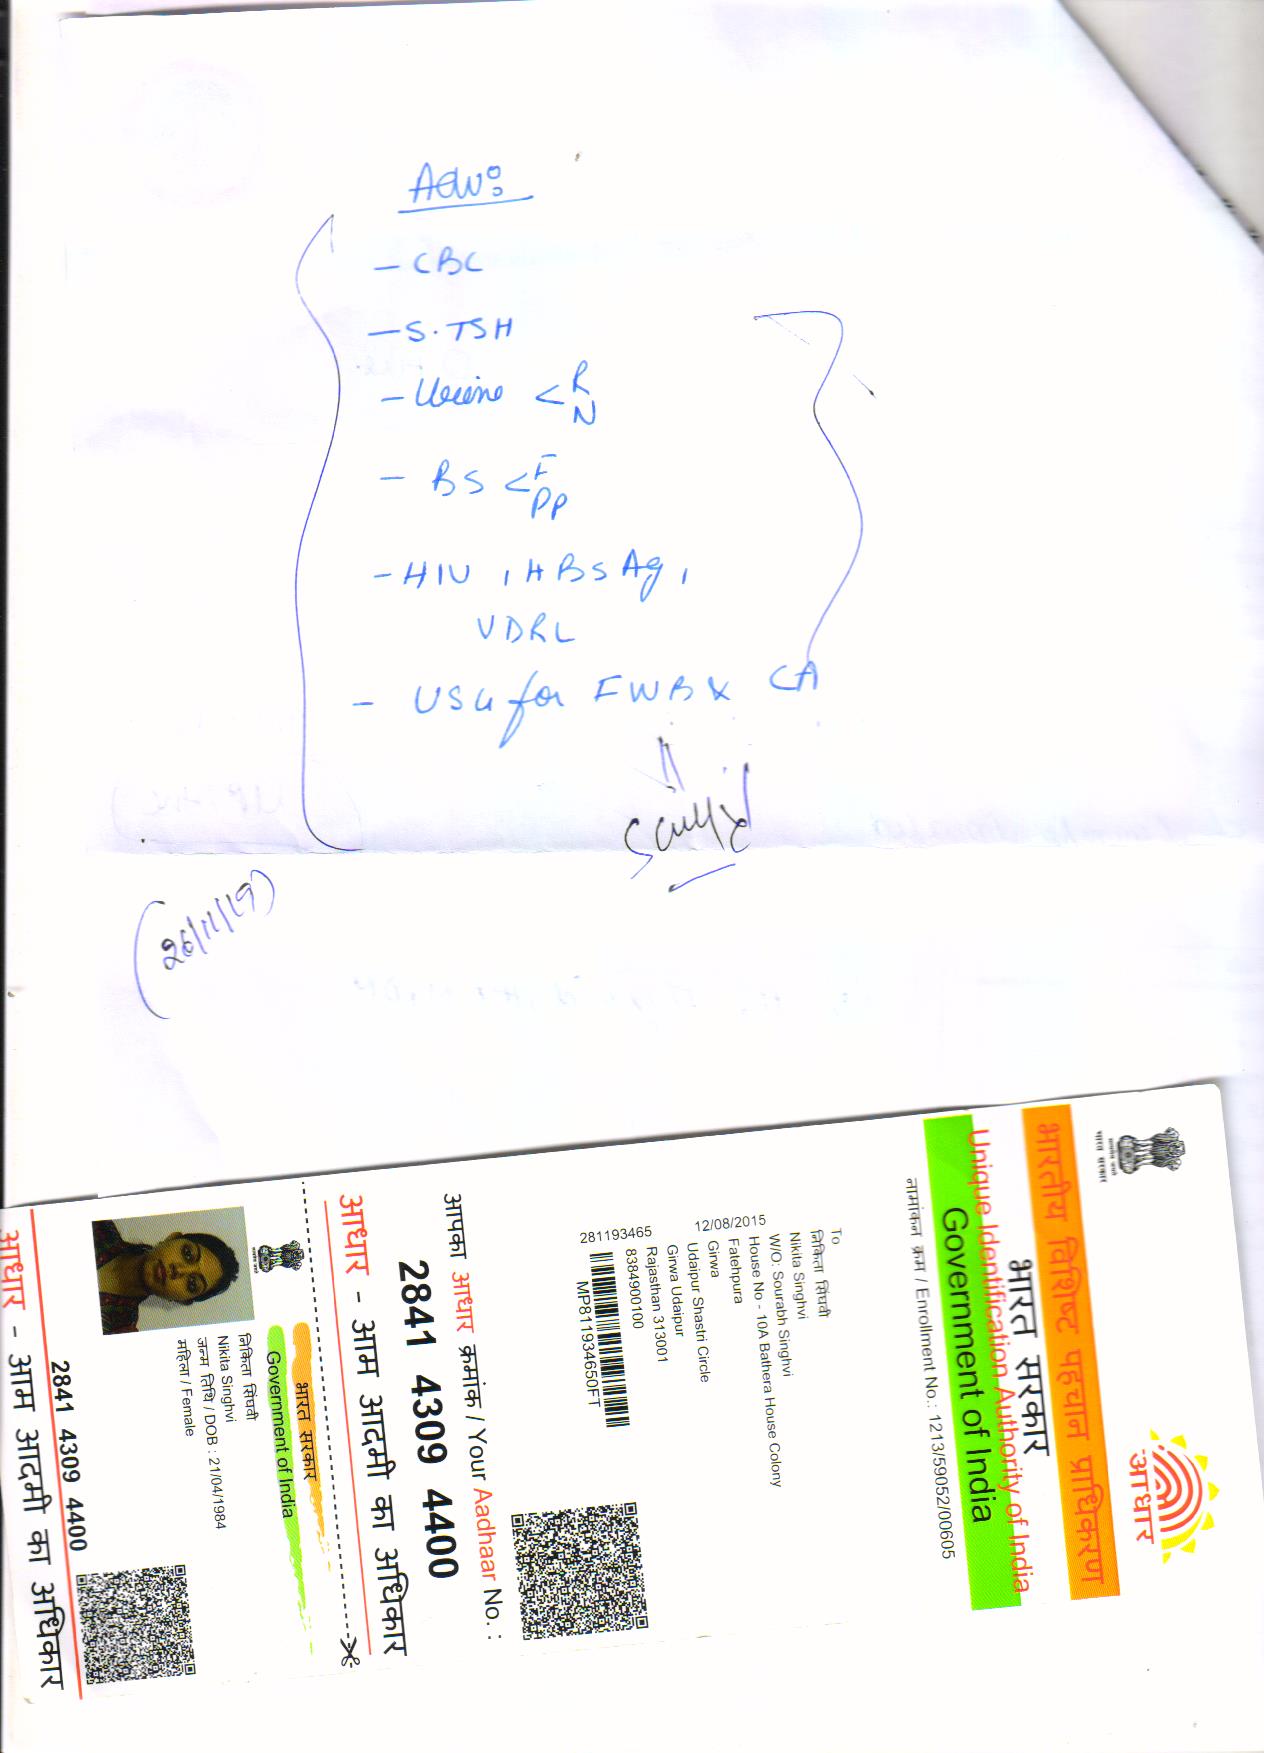 Adv:
- CBC
- S.TSH
- Urine < R
N
- BS < F
PP
- HIV, HBsAg,
VDRL
- USG for FWB & CA
(26/11/19)
भारत सरकार
भारतीय विशिष्ट पहचान प्राधिकरण
भारत सरकार
Unique Identification Authority of India
Government of India
आधार
नामांकन क्रम / Enrollment No.: 1213/59052/00605
To
निकिता सिंघवी
Nikita Singhvi
W/O: Sourabh Singhvi
House No - 10A Bathera House Colony
Fatehpura
Girwa
Udaipur Shastri Circle
Girwa Udaipur
Rajasthan 313001
8384900100
12/08/2015
281193465
MP811934650FT
आपका आधार क्रमांक / Your Aadhaar No. :
2841 4309 4400
आधार - आम आदमी का अधिकार
भारत सरकार
Government of India
निकिता सिंघवी
Nikita Singhvi
जन्म तिथि / DOB : 21/04/1984
महिला / Female
2841 4309 4400
आधार - आम आदमी का अधिकार